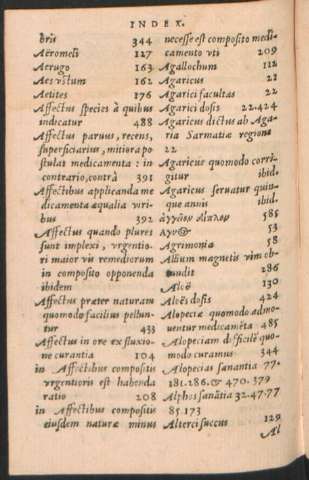 INDEX.
bris 344
Aëromeli 127
Aerugo 163
Aes vstum 162
Aetites 176
Affectus species à quibus
indicatur 488
Affectus paruus, recens,
superficiarius, mitiora po
stulat medicamenta: in
contrario, contrà 391
Affectibus applicanda me
dicamenta æqualia viri-
bus 392
Affectus quando plures
sunt implexi, vrgentio-
ri maior vis remediorum
in composito opponenda
ibidem
Affectus præter naturam
quomodo facilius pellun-
tur 433
Affectus in ore ex fluxio-
ne curantia 104
in Affectibus compositis
vrgentioris est habenda
ratio 208
in Affectibus compositis
eiusdem naturæ minus
necesse est composito medi-
camento vti 209
Agallochum 112
Agaricus 21
Agarici facultas 22
Agarici dosis 22.424
Agaricus dictus ab Aga-
ria Sarmatiæ regione
22
Agaricus quomodo corri-
gitur ibid.
Agaricus seruatur quin-
que annis ibid.
585
53
Agrimonia 58
Album magnetis vim ob-
tundit 286
Aloë 130
Aloës dosis 424
Alopeciæ quomodo admo-
uentur medicamēta 485
Alopeciam difficilē quo-
modo curamus 344
Alopecias sanantia 77.
181.286.& 470.379
Alphos sanātia 32.47.77
85.173
Alterci succus 129
Al